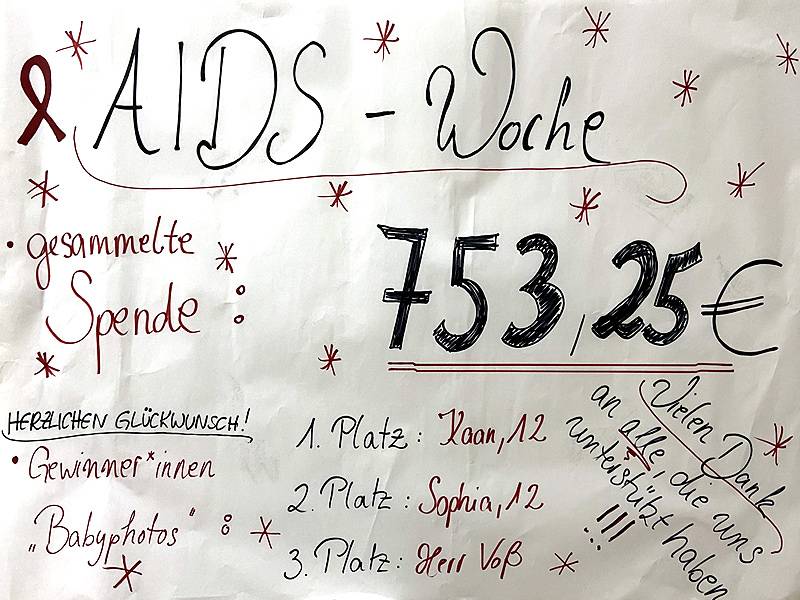 AIDS - Woche
• gesammelte
Spende :
753,25€
HERZLICHEN GLÜCKWUNSCH!
• Gewinner*innen
„Babyphotos" :
1. Platz: Kaan, 12
2. Platz: Sophia, 12
3. Platz: Herr Voß
Vielen Dank
an alle, die uns
unterstützt haben
!!!